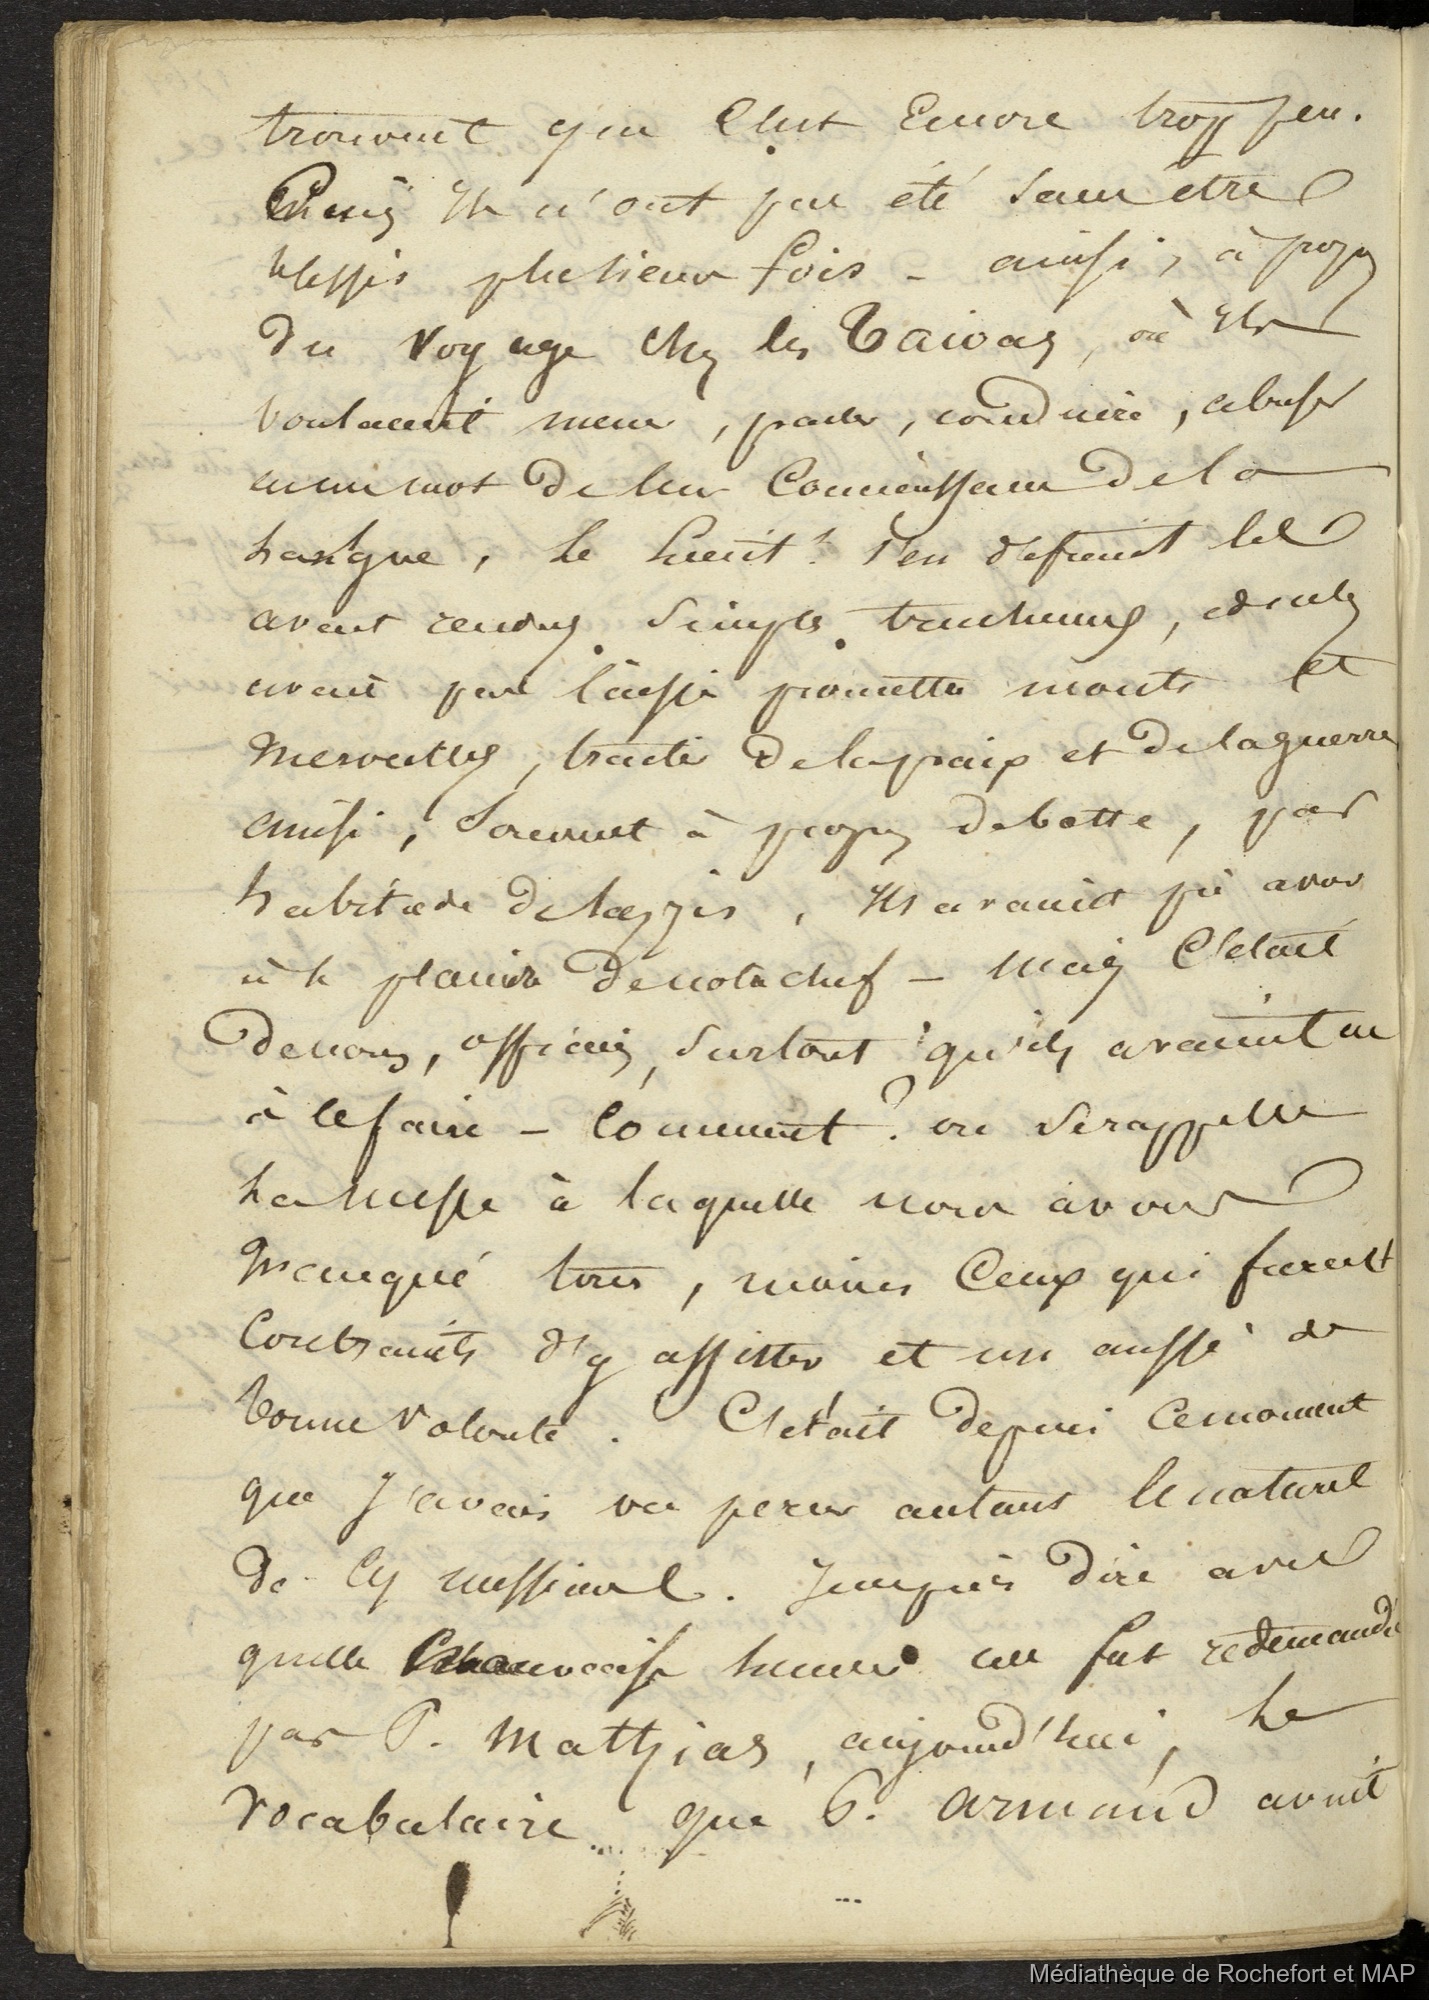 trouvent que c'est encore trop peu.
Mais ils n'ont pas été sans être
blessés plusieurs fois - ainsi, à propos
du voyage chez les Taivas, où ils
voulaient mener, parler, conduire, abuser
en un mot de leur connaissance de la
langue, le Lieut.t s'en défiant les
avait rendus simples truchements, et sans
avait pas laissé promettre monts et
merveilles, traiter de la paix et de la guerre
ainsi, souvent à propos de botte, par
habitude de lazzis, ils avaient pû avoir
à se plaindre de notre chef - mais c'était
de nous, officiers, surtout qu'ils avaient eu
à le faire - Comment ? on se rappelle
la messe à laquelle nous avons
manqué tous, moins ceux qui furent
contraints d'y assister et un aussi de
bonne volonté. C'était depuis ce moment
que j'avais vu percer autant le naturel
de ces messieurs. Je ne puis dire avec
quelle mauvaise humeur me fut redemandé
par P. Mathias, aujourd'hui, le
vocabulaire que P. Armand avait
Médiathèque de Rochefort et MAP